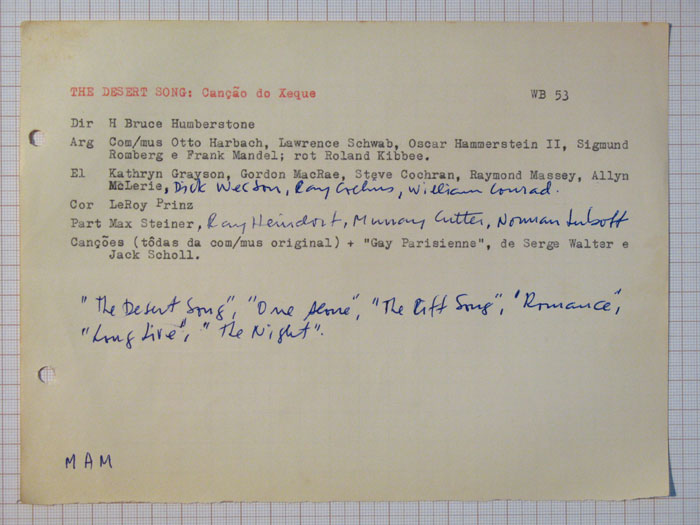 THE DESERT SONG: Canção do Xeque WB 53
Dir H Bruce Humberstone
Arg Com/mus Otto Harbach, Lawrence Schwab, Oscar Hammerstein II, Sigmund
Romberg e Frank Mandel; rot Roland Kibbee.
El Kathryn Grayson, Gordon MacRae, Steve Cochran, Raymond Massey, Allyn
McLerie, Dick Wesson, Ray Collins, William Conrad.
Cor LeRoy Prinz
Part Max Steiner, Ray Heindorf, Murray Cutter, Norman Luboff
Canções (tôdas da com/mus original) + "Gay Parisienne", de Serge Walter e
Jack Scholl.
"The Desert Song", "One Alone", "The Riff Song", "Romance",
"Long Live", "The Night".
MAM